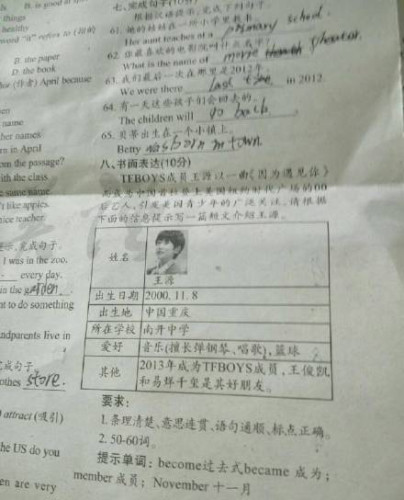 things
healthy
word "it" refers to (指的
B. the paper
D. the book
hor (作者) April because
name
her names
rn in April
om the passage?
ith the class
same name
't like apples.
nice teacher.
示,完成句子。
I was in the zoo.
every day.
in the garden
nt to do something
ndparents live in
完成句子。
othes store.
attract (吸引)
he US do you
en are very
七、完成句子(10分)
根据汉语提示,完成下列句子。
61. 她的姑姑在一所小学里教书。
Her aunt teaches at a primary school.
62. 你最喜欢的电影院叫什么名字?
What is the name of movie theater
63. 我们最后一次在哪里是2012年。
We were there last time in 2012.
64. 有一天这些孩子们会回去的。
The children will go back
65. 贝蒂出生在一个小镇上。
Betty was born in town
八、书面表达(10分)
TFBOYS成员王源以一曲《因为遇见你》
下面的信息提示写一篇短文介绍王源。
姓名
王源
出生日期 2000. 11. 8
出生地 中国重庆
所在学校 南开中学
爱好 音乐(擅长弹钢琴、唱歌),篮球
其他 2013年成为TFBOYS成员,王俊凯
和易烊千玺是其好朋友。
要求:
1. 条理清楚、意思连贯、语句通顺、标点正确。
2. 50-60词。
提示单词:become过去式became 成为;
member 成员;November 十一月